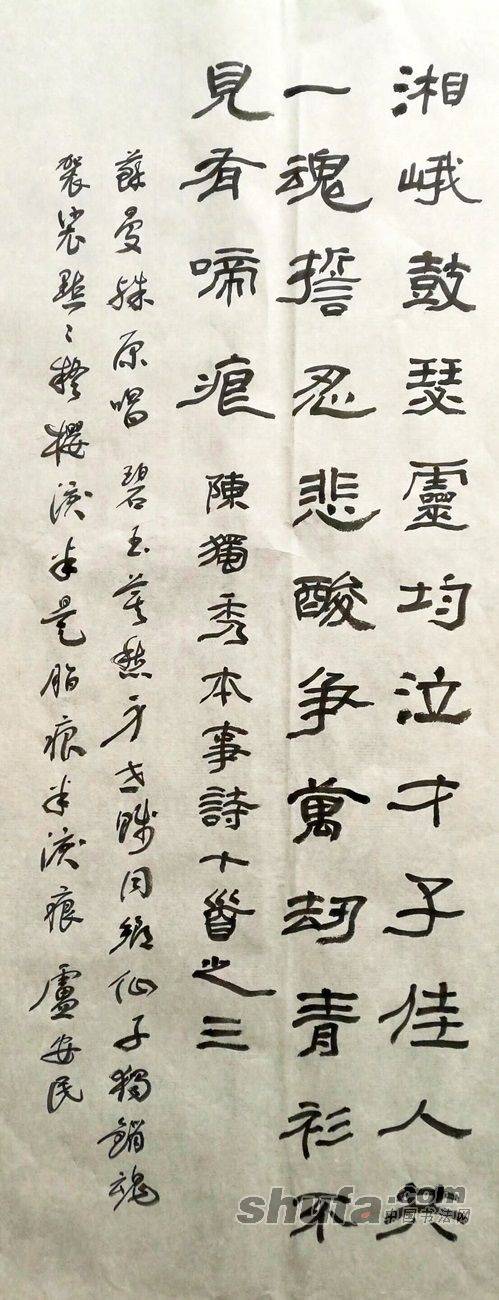 湘峨鼓瑟靈均泣才子佳人共
一魂誓忍悲酸争萬劫青衫不
見有啼痕 陳獨秀本事詩十首之三
蘇曼殊原唱 碧玉莫愁身世賤同鄉仙子獨銷魂
袈裟點々疑櫻淚半是脂痕半淚痕 盧安民
shufa.com
中国书法网